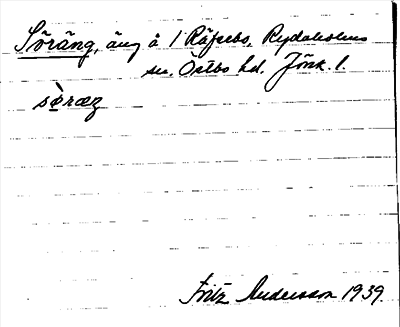 Söräng, äng å 1 Räfsebo, Rydaholms
sn. Östbo hd. Jönk. l.
sø̀ræŋ
Fritz Andersson 1939.